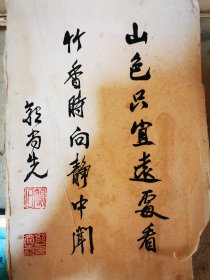 山色只宜遠處看
竹香時向靜中聞
郭尚先